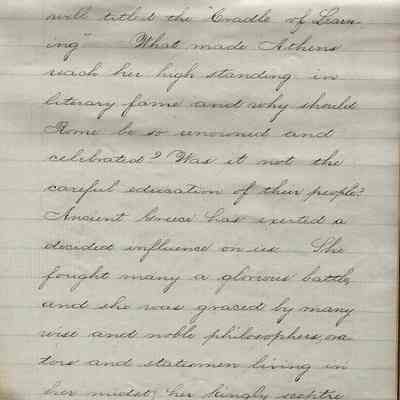 well titled the "Cradle of Learn-
ing" What made Athens
reach her high standing in
literary fame and why should
Rome be so renowned and
celebrated? Was it not the
careful education of their people?
Ancient Greece has exerted a
decided influence on us She
fought many a glorious battle,
and she was graced by many
wise and noble philosophers, ora-
tors and statesmen living in
her midst, her kingly sceptre